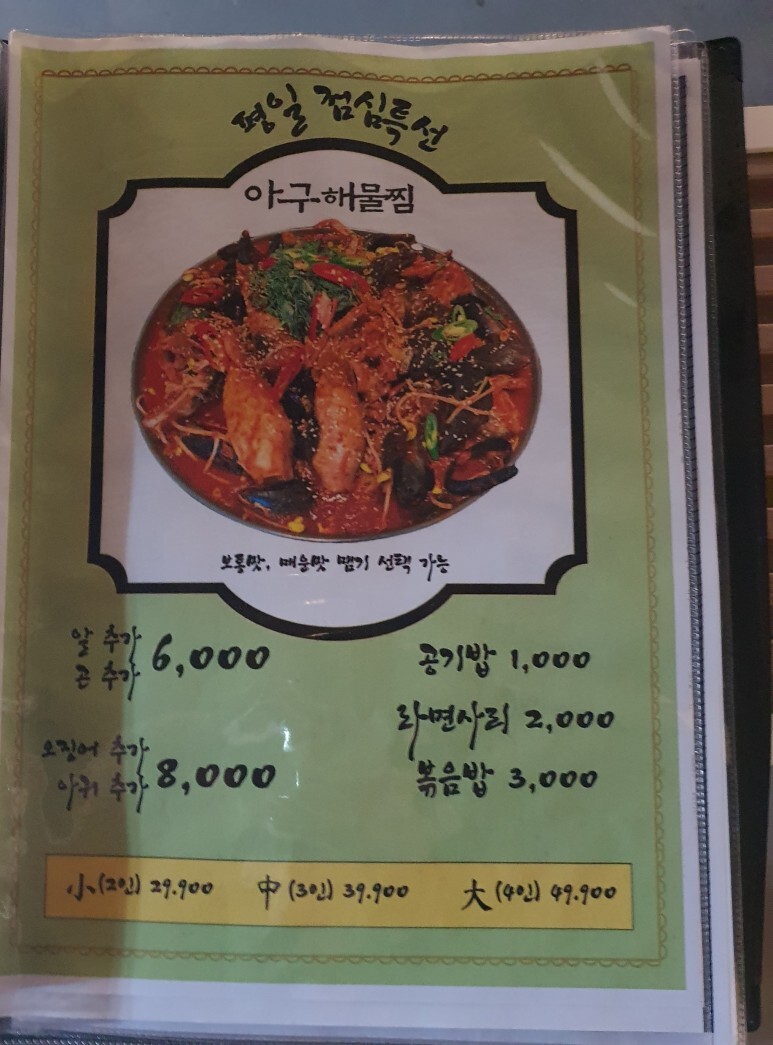 평일 점심특선
아구해물찜
보통맛, 매운맛 맵기 선택 가능
알 추가
곤 추가 6,000
오징어 추가
아귀 추가 8,000
공기밥 1,000
라면사리 2,000
볶음밥 3,000
小(2인) 29.900 中(3인) 39.900 大(4인) 49.900